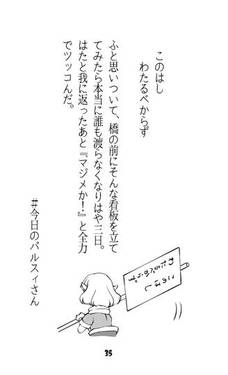 このはし
わたるべからず
ふと思いついて、橋の前にそんな看板を立て
てみたら本当に誰も渡らなくなりはや三日。
はたと我に返ったあと『マジメか！』と全力
でツッコんだ。
#今日のパルスィさん
このはし
わたるべからず
35